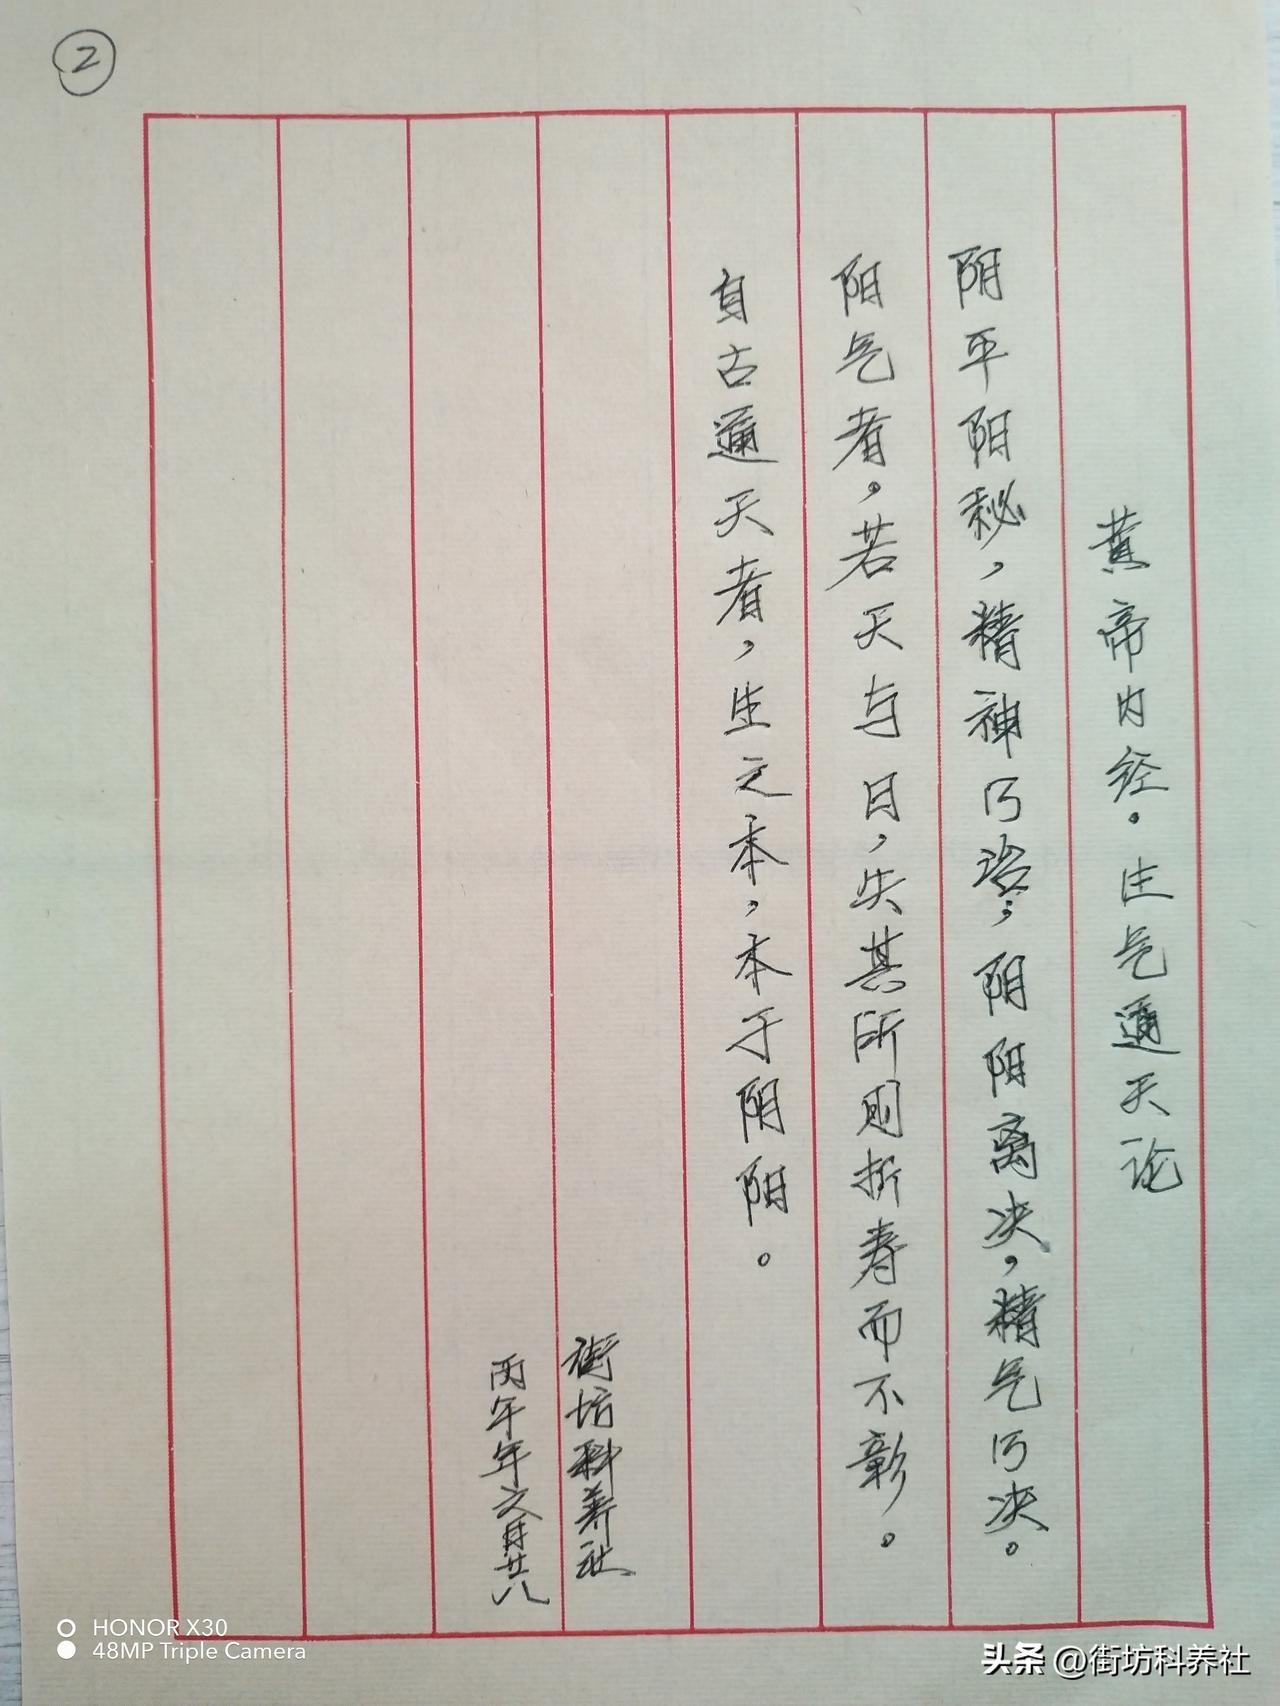 ②
黄帝内经·生气通天论
阴平阳秘,精神乃治;阴阳离决,精气乃决。
阳气者,若天与日,失其所则折寿而不彰。
自古通天者,生之本,本于阴阳。
街坊科养社
丙午年月廿八
HONOR X30
48MP Triple Camera
头条 @街坊科养社